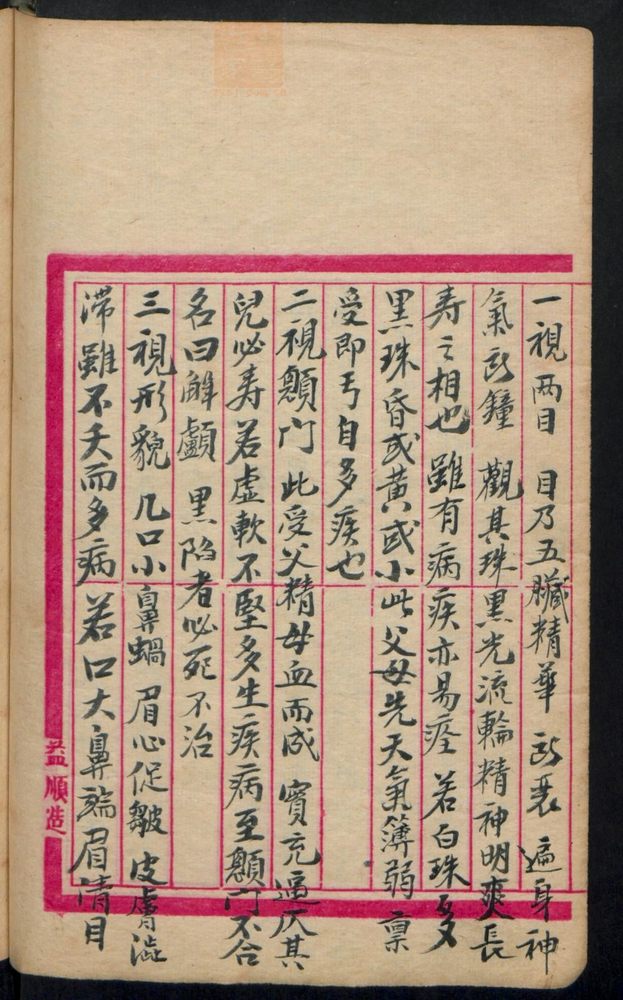 一視两目 目乃五臟精華 所衷 遍身神
氣所鐘 觀其珠黑光流輪精神明爽長
寿之相也 雖有病疾亦易痊 若白珠多
黑珠昏或黃或小此父母先天氣薄弱 禀
受即亏自多疾也
二視顖门 此受父精母血而成 實充 其
兒必寿若虛軟不堅多生疾病至顖门不合
名曰解顱 黑陷者必死不治
三視形貌 几口小鼻蝸 眉心促皺 皮膚澁
滯雖不夭而多病 若口大鼻端眉清目
益順造